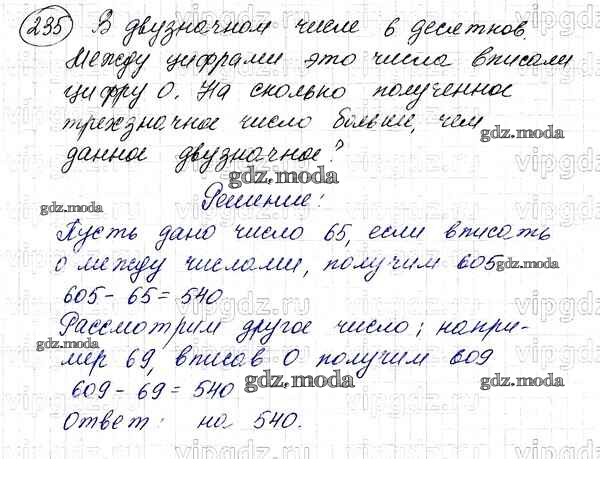 235 В двузначном числе 6 десятков.
Между цифрами это числа вписали
цифру 0. На сколько полученное
трехзначное число больше, чем
данное двузначное?
Решение:
Пусть дано число 65, если вписать
0 между числами, получим 605
605 - 65 = 540
Рассмотрим другое число; напри-
мер 69, вписав 0 получим 609
609 - 69 = 540
Ответ: на 540.
gdz.moda
gdz.moda
gdz.moda
gdz.moda
gdz.moda
gdz.moda
gdz.moda
vipgdz.ru